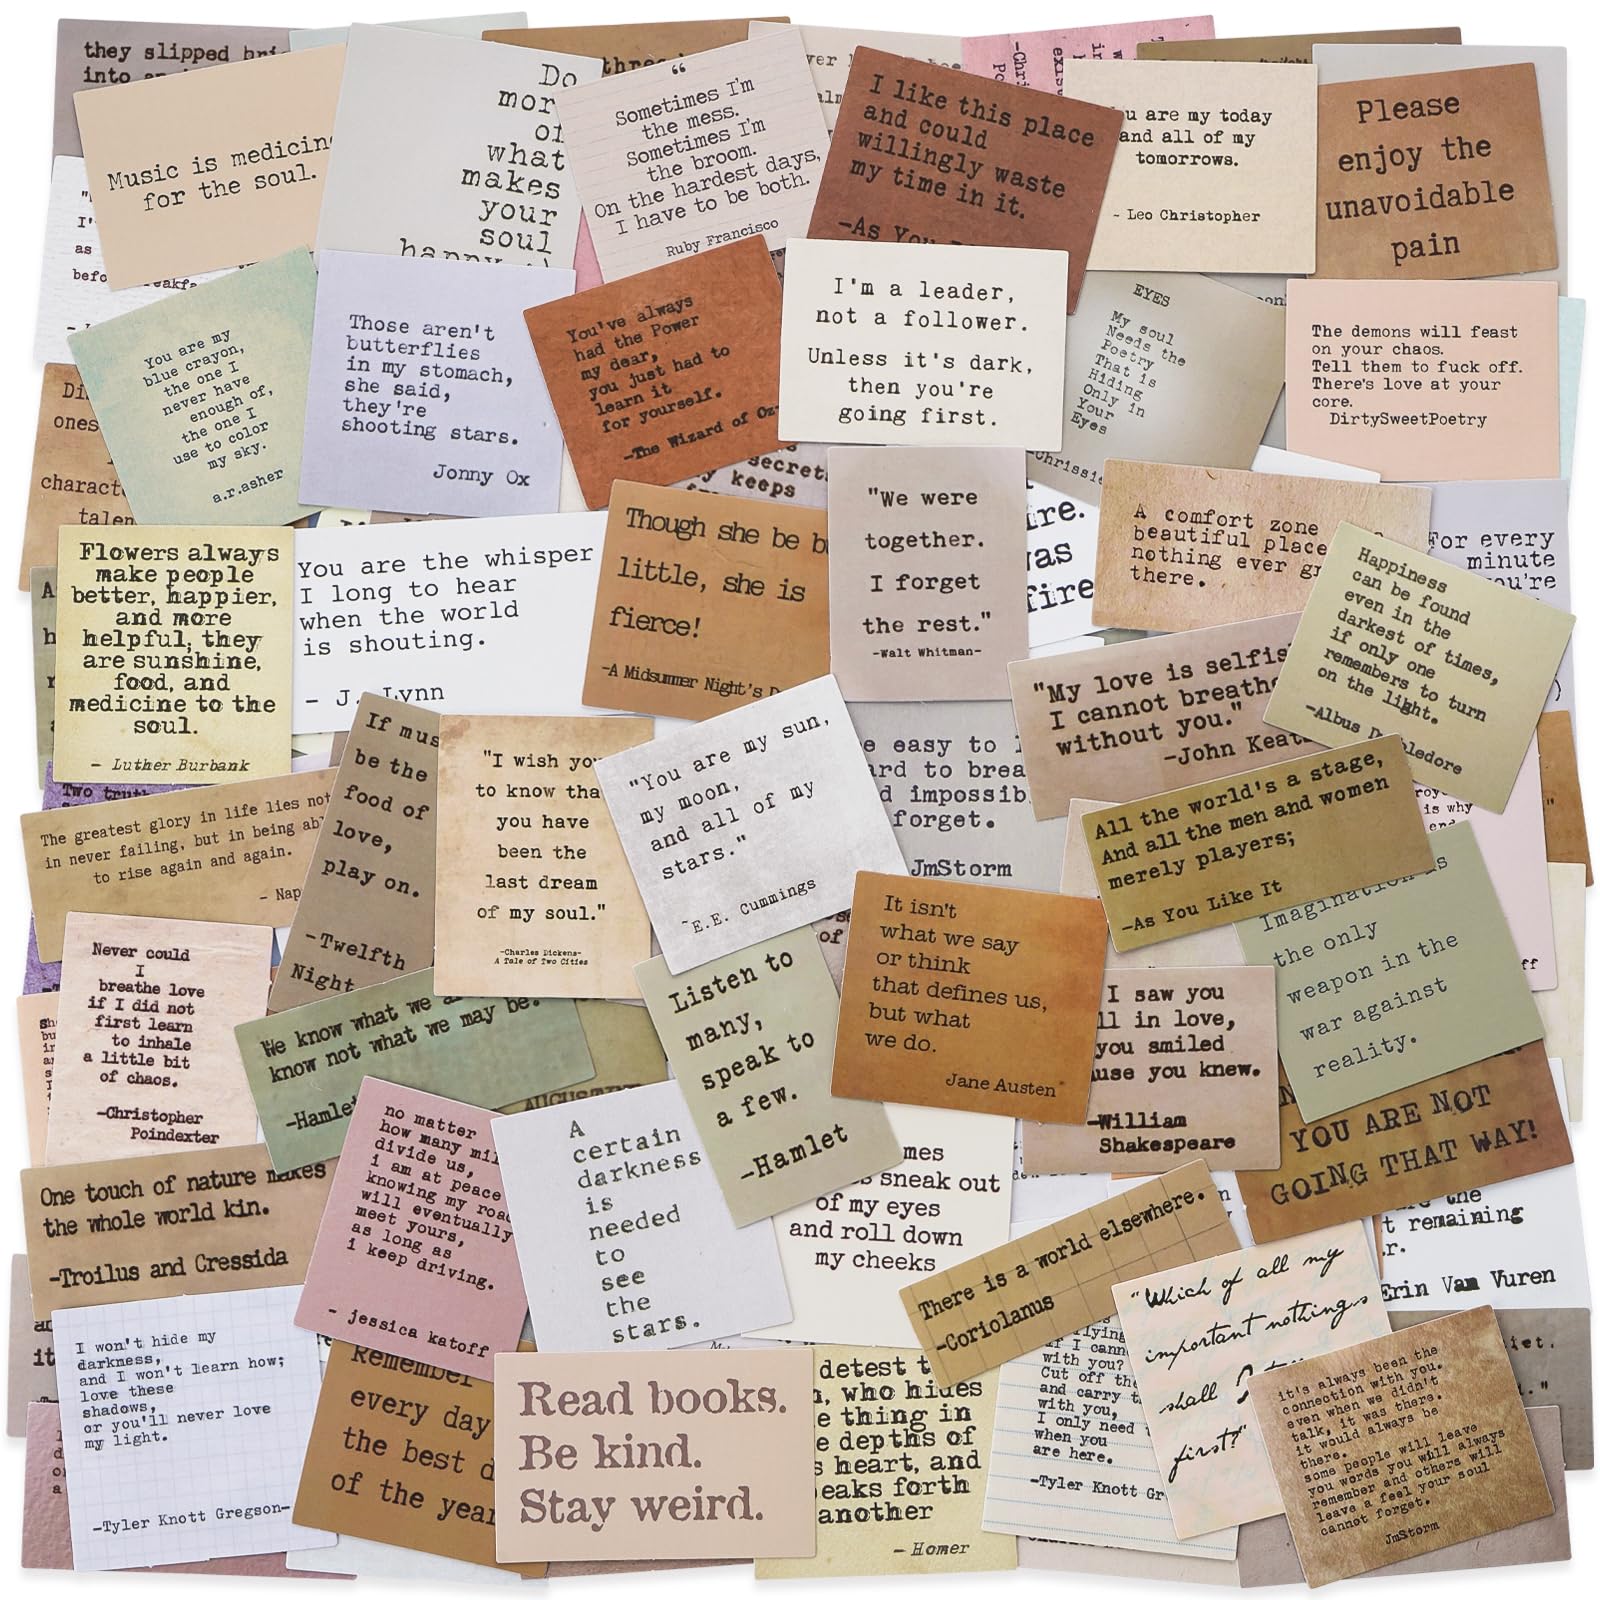 they slipped
into
Music is medicine
for the soul.
Do
mor
of
what
makes
your
soul
happy
three
“
Sometimes I'm
the mess.
Sometimes I'm
the broom.
On the hardest days,
I have to be both.
Ruby Francisco
I like this place
and could
willingly waste
my time in it.
-As You
are my today
and all of my
tomorrows.
- Leo Christopher
Please
enjoy the
unavoidable
pain
I'
as
befo
You are my
blue crayon,
the one I
never have
enough of,
the one I
use to color
my sky.
a.r.asher
Those aren't
butterflies
in my stomach,
she said,
they're
shooting stars.
Jonny Ox
You've always
had the Power
my dear,
you just had to
learn it
for yourself.
-The Wizard of Oz-
I'm a leader,
not a follower.
Unless it's dark,
then you're
going first.
EYES
My soul
Needs the
Poetry
That is
Hiding
Only in
Your
Eyes
Chrissie
The demons will feast
on your chaos.
Tell them to fuck off.
There's love at your
core.
DirtySweetPoetry
Di
ones
charact
talen
secrets
keeps
Flowers always
make people
better, happier,
and more
helpful; they
are sunshine,
food, and
medicine to the
soul.
- Luther Burbank
You are the whisper
I long to hear
when the world
is shouting.
- J. Lynn
Though she be b
little, she is
fierce!
-A Midsummer Night's D
"We were
together.
I forget
the rest."
-Walt Whitman-
ire.
was
fire
A comfort zone
beautiful place
nothing ever gr
there.
For every
minute
you're
Happiness
can be found
even in the
darkest of times,
if only one
remembers to turn
on the light.
-Albus Dumbledore
"My love is selfis
I cannot breathe
without you."
-John Keat
Two truth
The greatest glory in life lies not
in never failing, but in being ab
to rise again and again.
- Nap
If mus
be the
food of
love,
play on.
-Twelfth
Night
"I wish you
to know tha
you have
been the
last dream
of my soul."
-Charles Dickens-
A Tale of Two Cities
"You are my sun,
my moon,
and all of my
stars."
~E.E. Cummings
e easy to
ard to brea
d impossib
forget.
JmStorm
All the world's a stage,
And all the men and women
merely players;
-As You Like It
is why
Imagination is
the only
weapon in the
war against
reality.
Never could
I
breathe love
if I did not
first learn
to inhale
a little bit
of chaos.
-Christopher
Poindexter
We know what we a
know not what we may be.
-Hamlet
Listen to
many,
speak to
a few.
-Hamlet
of
It isn't
what we say
or think
that defines us,
but what
we do.
Jane Austen
I saw you
ll in love,
you smiled
use you knew.
-William
Shakespeare
YOU ARE NOT
GOING THAT WAY!
One touch of nature makes
the whole world kin.
-Troilus and Cressida
no matter
how many mil
divide us,
i am at peace
knowing my road
will eventually
meet yours,
as long as
i keep driving.
- jessica katoff
A
certain
darkness
is
needed
to
see
the
stars.
mes
sneak out
of my eyes
and roll down
my cheeks
There is a world elsewhere.
-Coriolanus
the
t remaining
r.
Erin Van Vuren
"Which of all my
important nothings
shall I
first?"
I won't hide my
darkness,
and I won't learn how;
love these
shadows,
or you'll never love
my light.
-Tyler Knott Gregson-
Remember
every day
the best d
of the year
Read books.
Be kind.
Stay weird.
detest t
, who hides
e thing in
e depths of
s heart, and
eaks forth
another
- Homer
lying
if I cann
with you?
Cut off the
and carry t
with you,
I only need
when you
are here.
-Tyler Knott Gr
it's always been the
connection with you.
even when we didn't
talk, it was there.
it would always be
there.
some people will leave
you words you will always
remember and others will
leave a feel your soul
cannot forget.
JmStorm